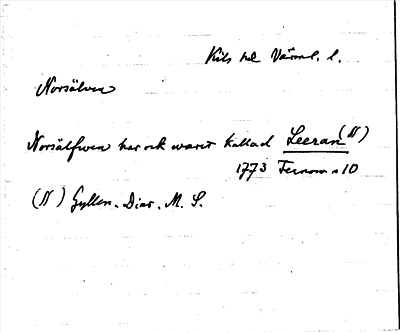 Kils hd Värml. l.
Norsälven
Norsälfwen har ock warit kallad Leeran (N)
1773 Fernow s 10
(N) Gyllen. Diar. M. S.